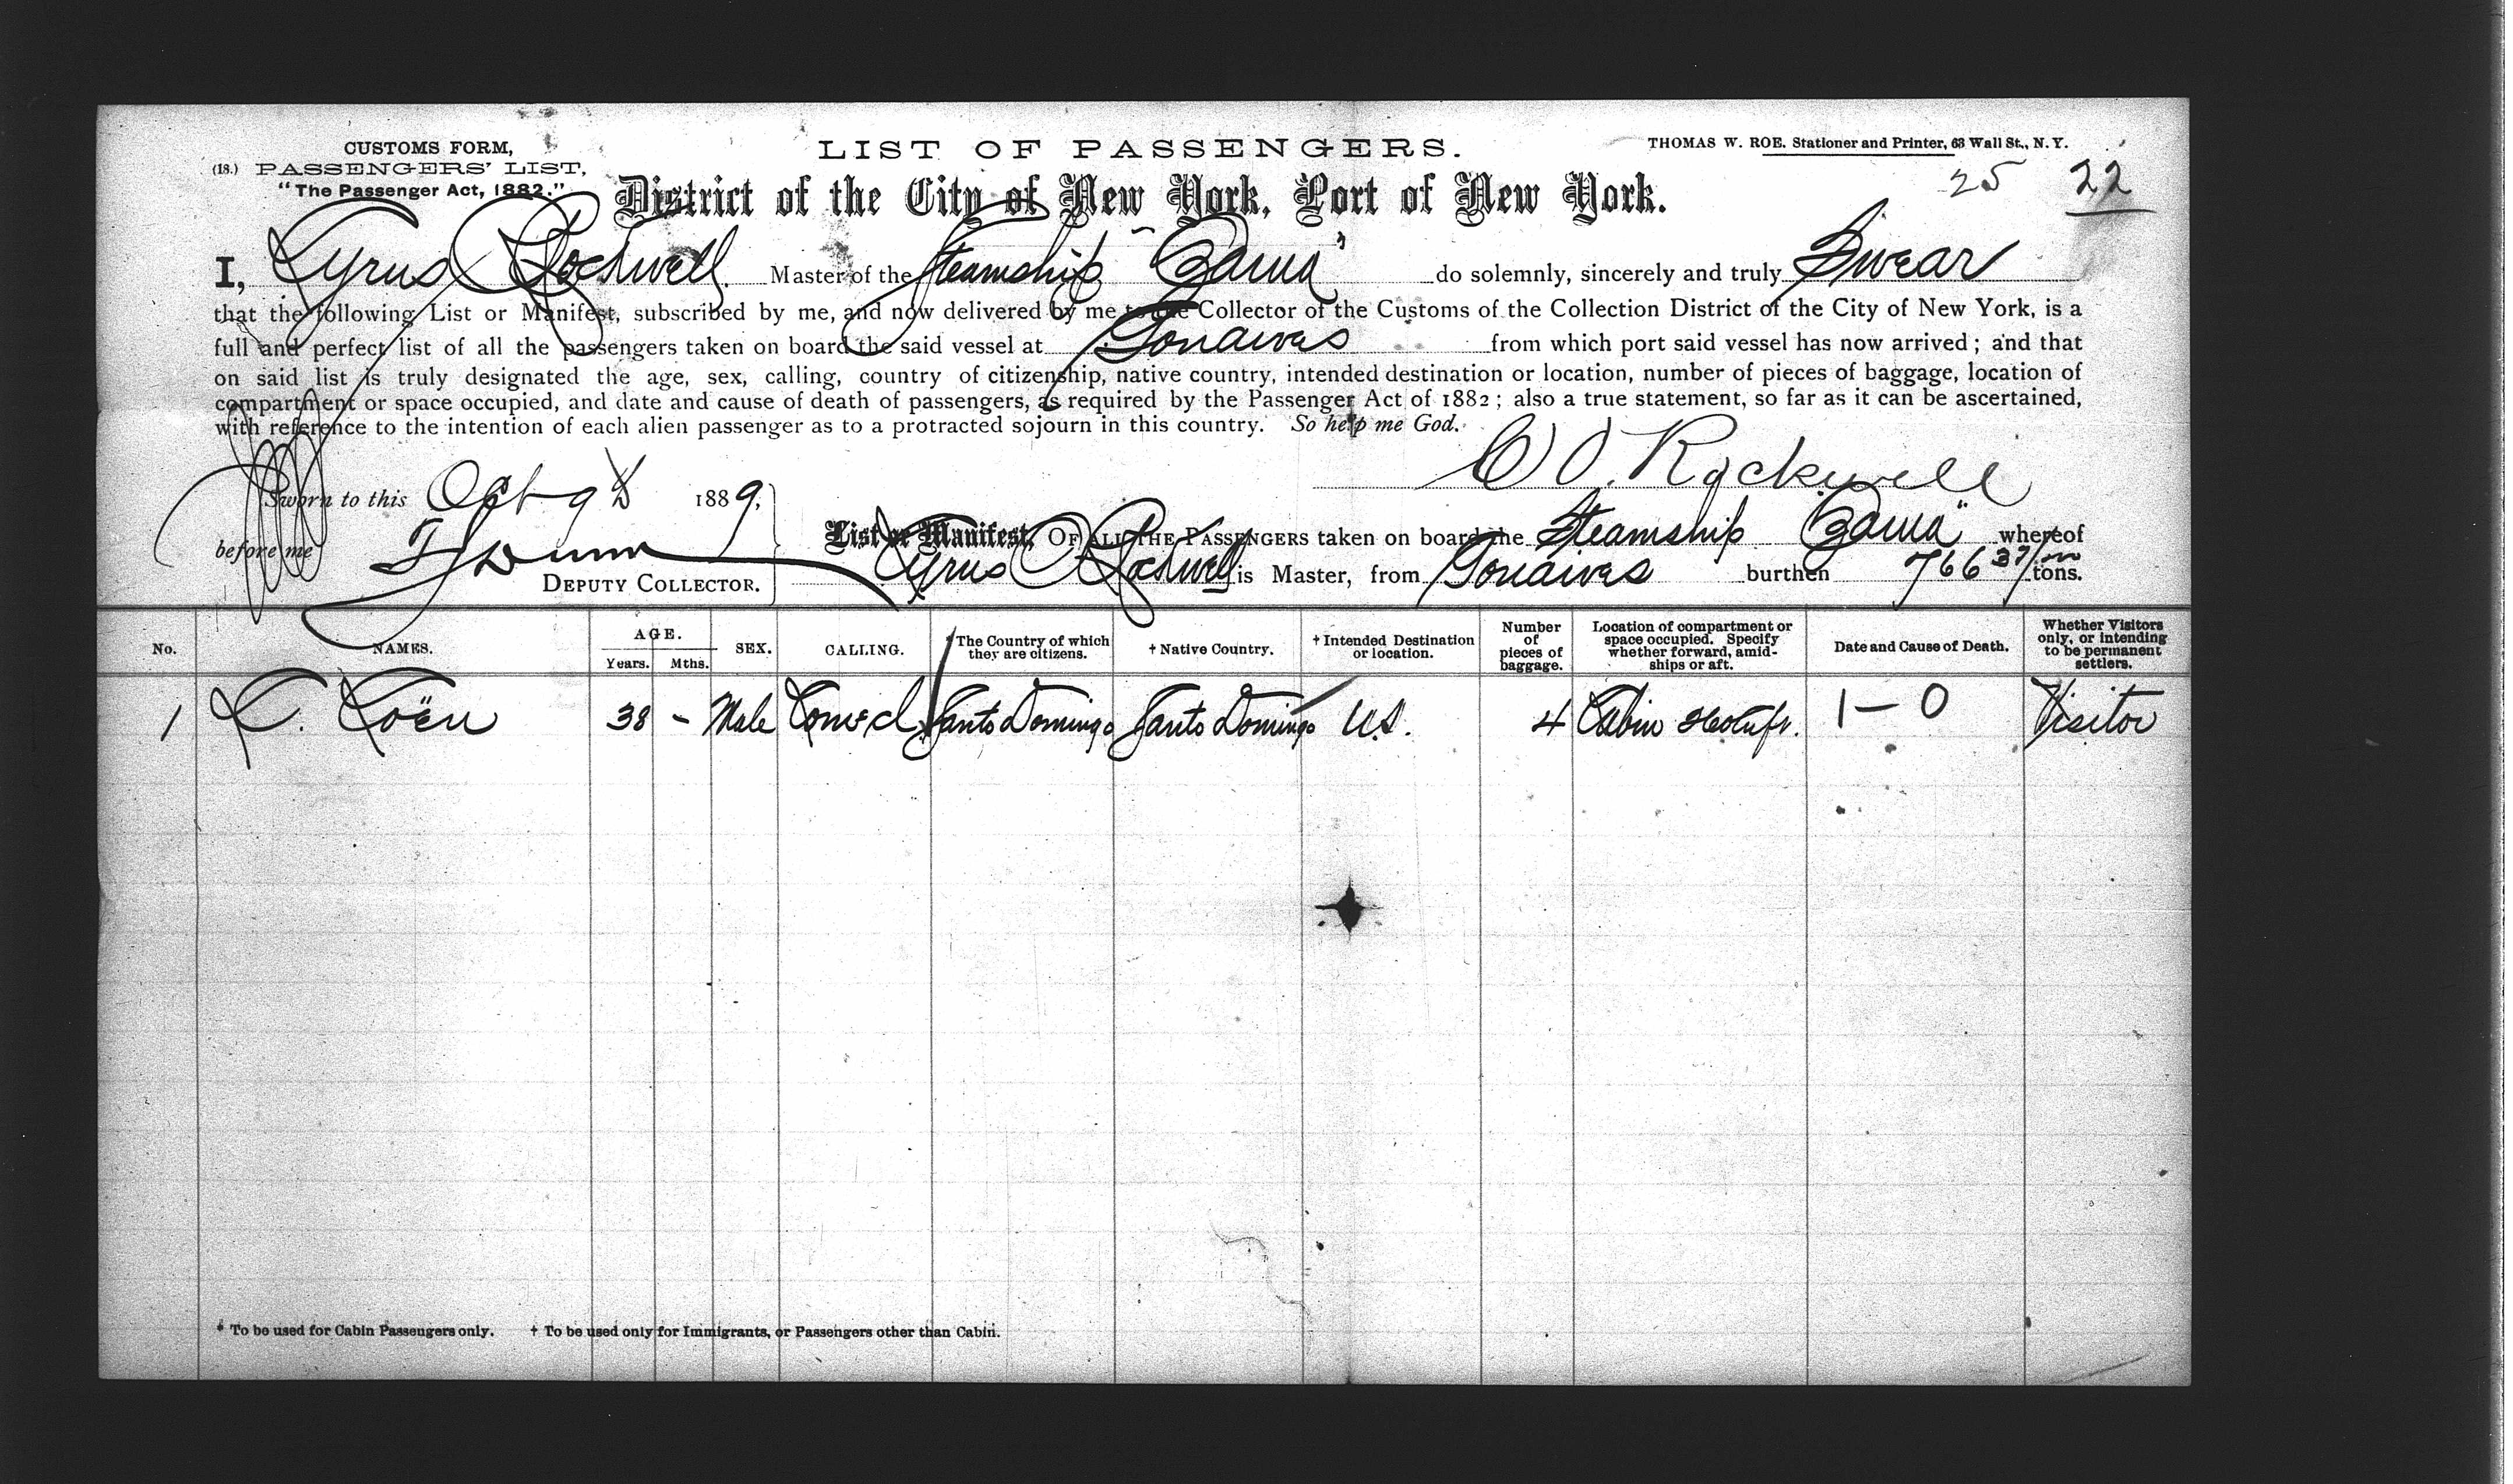 CUSTOMS FORM,
(18.) PASSENGERS' LIST,
"The Passenger Act, 1882."
LIST OF PASSENGERS.
THOMAS W. ROE. Stationer and Printer, 63 Wall St., N. Y.
District of the City of New York, Port of New York.
25 22
I, Cyrus O Rockwell Master of the Steamship "Ozama" do solemnly, sincerely and truly Swear
that the following List or Manifest, subscribed by me, and now delivered by me to the Collector of the Customs of the Collection District of the City of New York, is a
full and perfect list of all the passengers taken on board the said vessel at Gonaives from which port said vessel has now arrived; and that
on said list is truly designated the age, sex, calling, country of citizenship, native country, intended destination or location, number of pieces of baggage, location of
compartment or space occupied, and date and cause of death of passengers, as required by the Passenger Act of 1882; also a true statement, so far as it can be ascertained,
with reference to the intention of each alien passenger as to a protracted sojourn in this country. So help me God.
C O. Rockwell
Sworn to this Oct 9 1889,
before me
DEPUTY COLLECTOR.
List or Manifest, OF ALL THE PASSENGERS taken on board the Steamship "Ozama" whereof
Cyrus O Rockwell is Master, from Gonaives burthen 766 37/100 tons.
No. NAMES. AGE. Years. Mths. SEX. CALLING. The Country of which they are citizens. † Native Country. † Intended Destination or location. Number of pieces of baggage. Location of compartment or space occupied. Specify whether forward, amidships or aft. Date and Cause of Death. Whether Visitors only, or intending to be permanent settlers.
1 C. Coën 38 - Male Com'cl Santo Domingo Santo Domingo U.S. 4 Cabin 1-0 Visitor
* To be used for Cabin Passengers only. † To be used only for Immigrants, or Passengers other than Cabin.